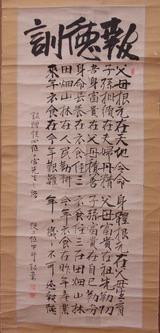 報徳訓
父母根元在天地令命 身體根元在父母生育
子孫相續在夫婦丹精 父母富貴在祖先勤功
吾身富貴在父母積善 子孫富貴在自己勤労
身命長養在衣食住三 衣食住三在田畑山林
田畑山林在人民勤耕 今年衣食在昨年産業
来年衣食在今年艱難 年々歳々不可忘報徳